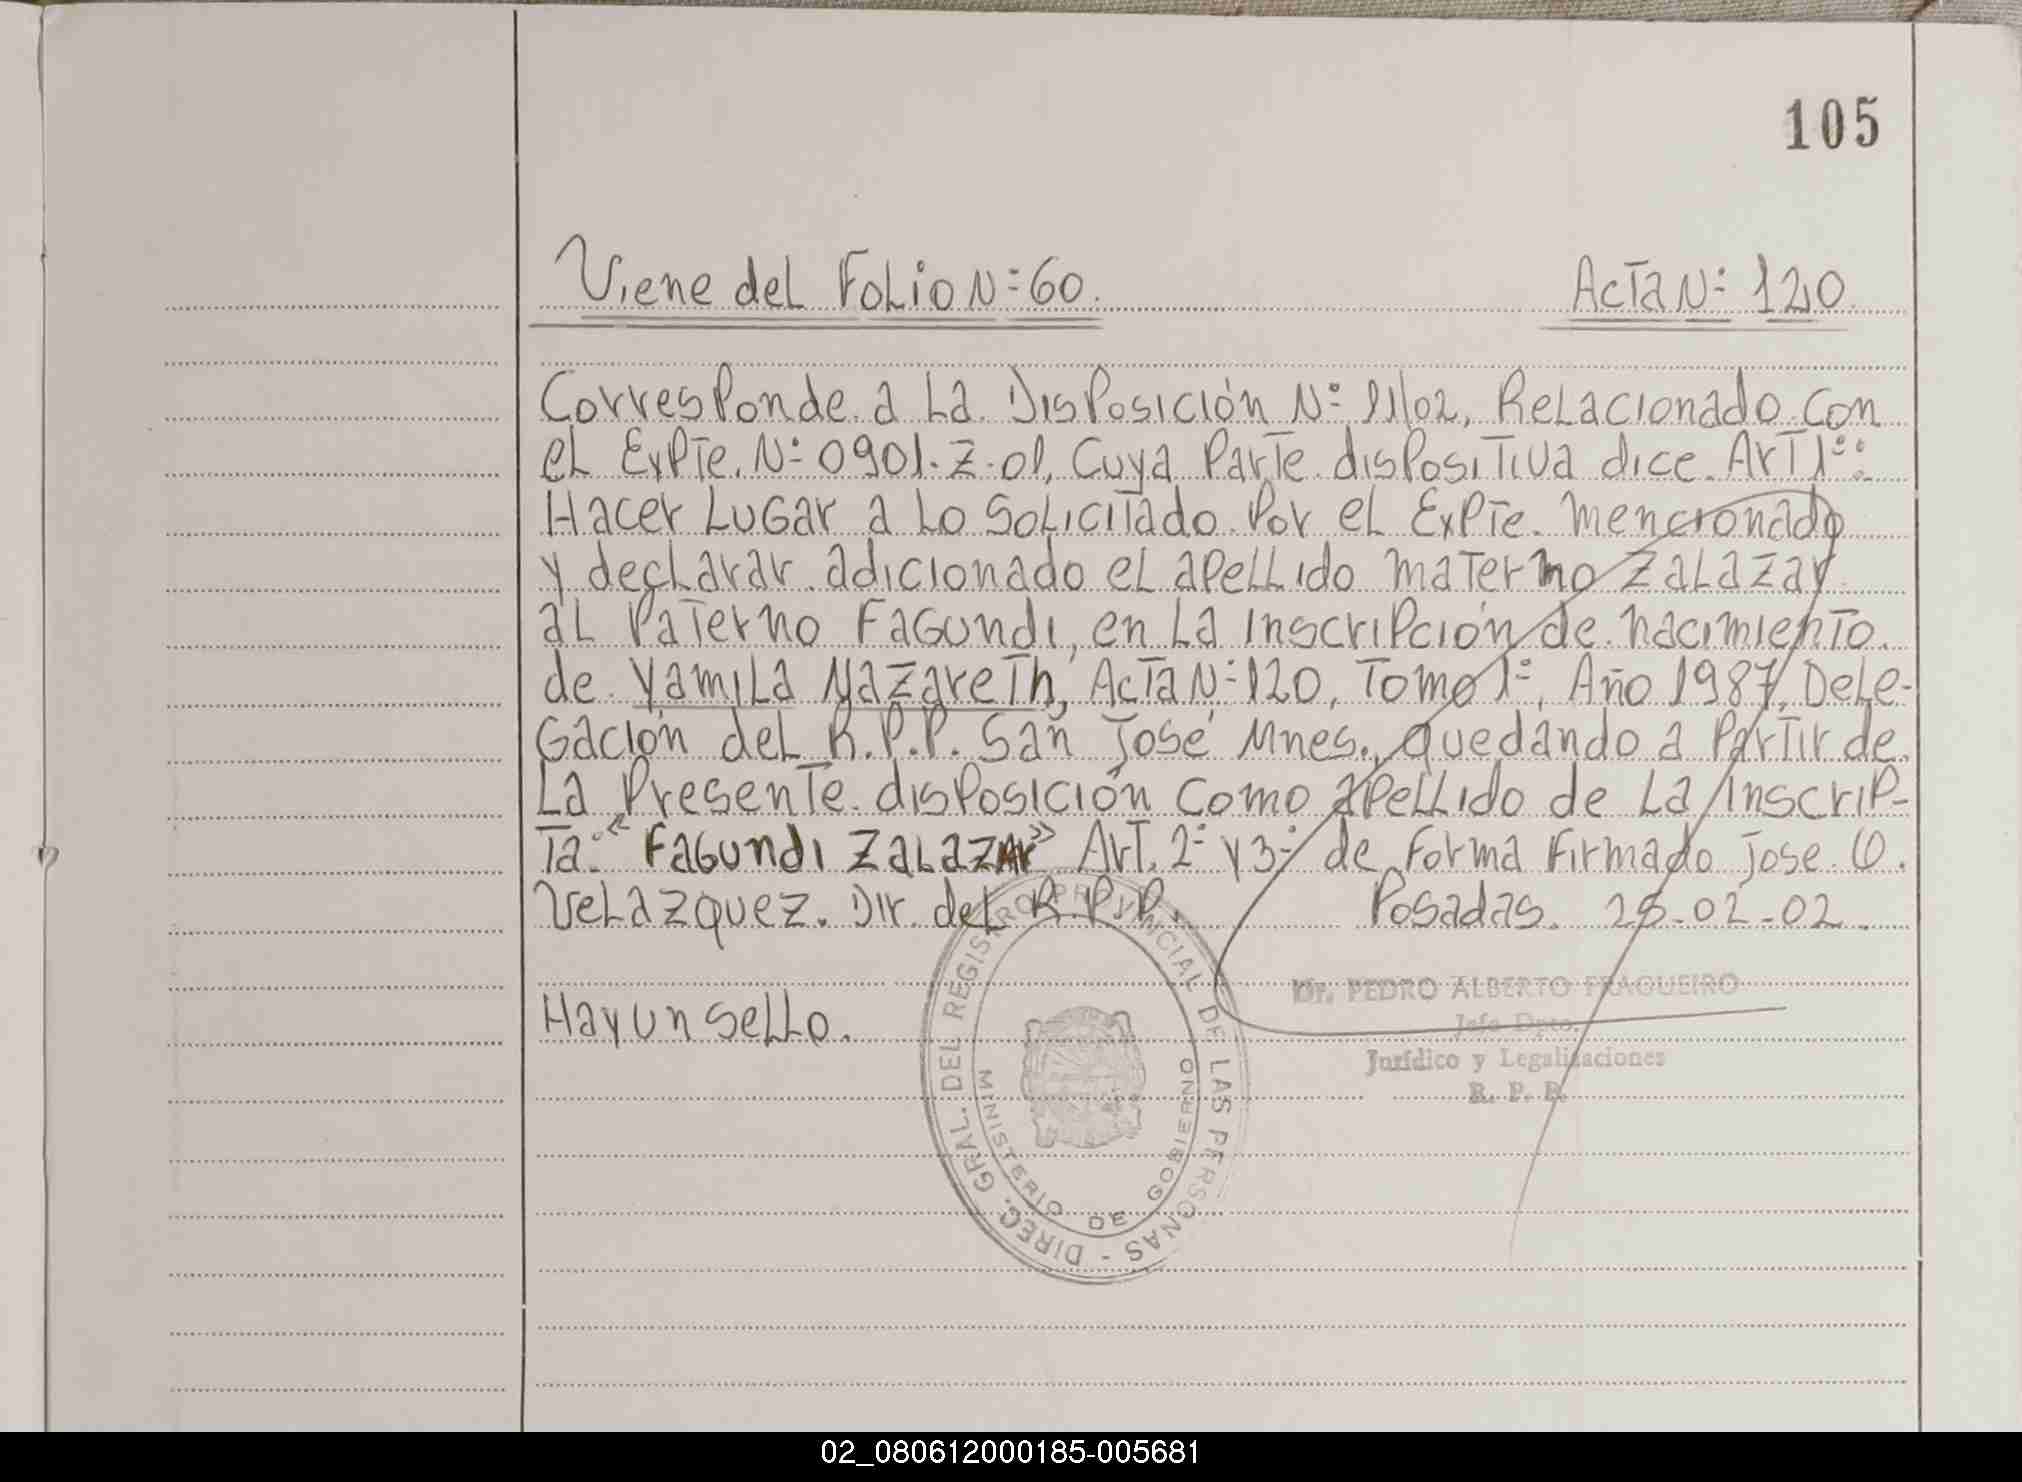 105
Viene del Folio Nº: 60. Acta Nº: 120.
Corresponde a la Disposición Nº 21/02, Relacionado con
el Expte. Nº 0901-Z-01, Cuya Parte dispositiva dice. Art 1º:
Hacer Lugar a lo Solicitado Por el Expte. mencionado
y declarar adicionado el apellido materno Zalazar
al Paterno Fagundi, en la inscripción de nacimiento
de Yamila Nazareth, Acta Nº 120, Tomo 1º, Año 1987, Dele-
gación del R.P.P. San José Mnes., quedando a Partir de
la Presente disposición como apellido de la inscrip-
ta: "Fagundi Zalazar" Art. 2º y 3º de forma Firmado Jose O.
Velazquez. Dir. del R.P.P. Posadas. 25-02-02.
Hay un sello.
DIREC. GRAL. DEL REGISTRO PROVINCIAL DE LAS PERSONAS -
MINISTERIO DE GOBIERNO
Dr. PEDRO ALBERTO FRAGUEIRO
Jefe Dpto.
Jurídico y Legalizaciones
R. P. P.
02_080612000185-005681